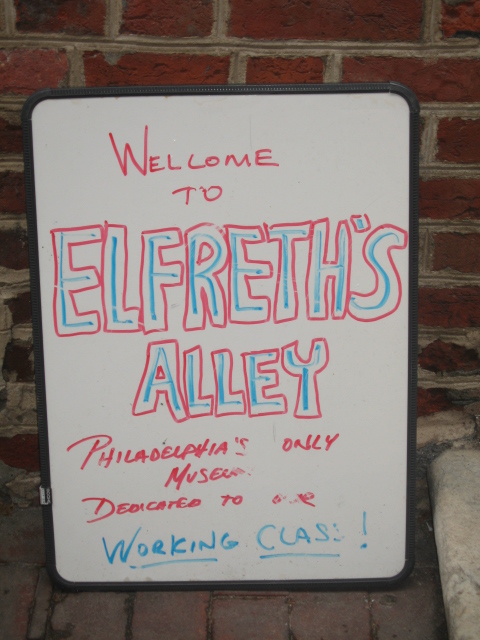 WELCOME
TO
ELFRETH'S
ALLEY
PHILADELPHIA'S ONLY
MUSEUM
DEDICATED TO
WORKING CLASS!